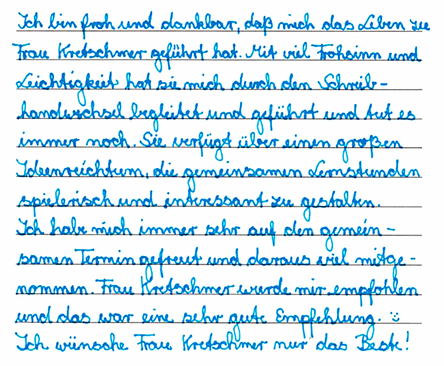 Ich bin froh und dankbar, daß mich das Leben zu
Frau Kretschmer geführt hat. Mit viel Frohsinn und
Leichtigkeit hat sie mich durch den Schreib-
handwechsel begleitet und geführt und tut es
immer noch. Sie verfügt über einen großen
Ideenreichtum, die gemeinsamen Lernstunden
spielerisch und interessant zu gestalten.
Ich habe mich immer sehr auf den gemein-
samen Termin gefreut und daraus viel mitge-
nommen. Frau Kretschmer wurde mir empfohlen
und das war eine sehr gute Empfehlung. :-)
Ich wünsche Frau Kretschmer nur das Beste!